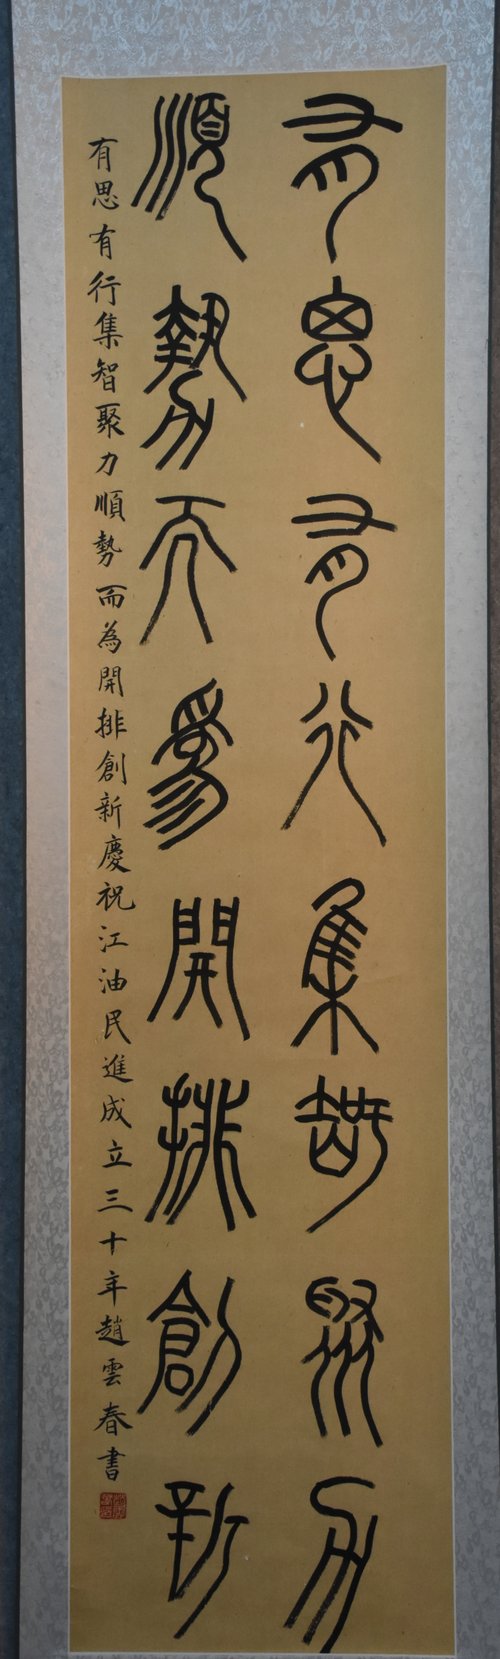 有思有行集智聚力
順勢而為開排創新
有思有行集智聚力順勢而為開排創新慶祝江油民進成立三十年趙雲春書